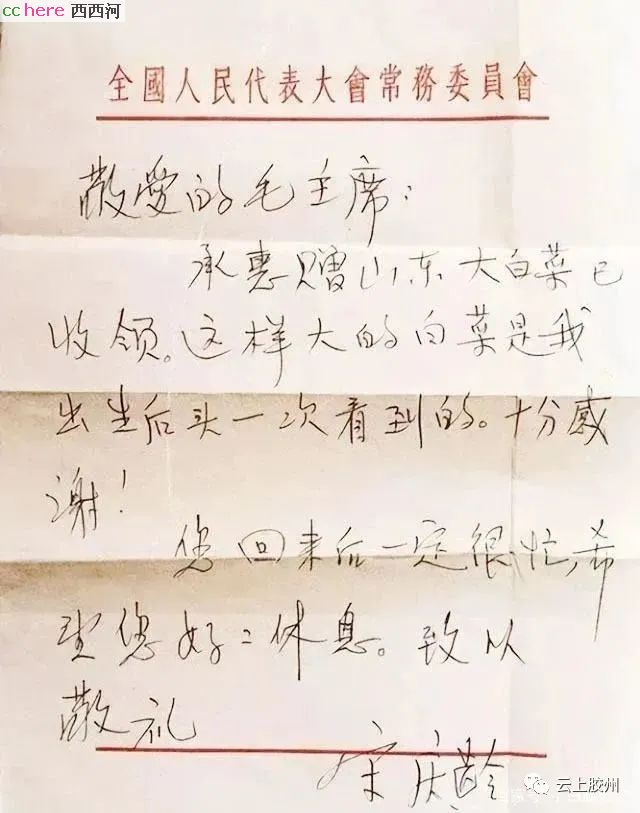 cchere 西西河
全國人民代表大會常務委員會
敬爱的毛主席：
承惠赠山东大白菜已
收领。这样大的白菜是我
出生后头一次看到的。十分感
谢！
您回来后一定很忙，希
望您好二休息。致以
敬礼
宋庆龄
云上胶州